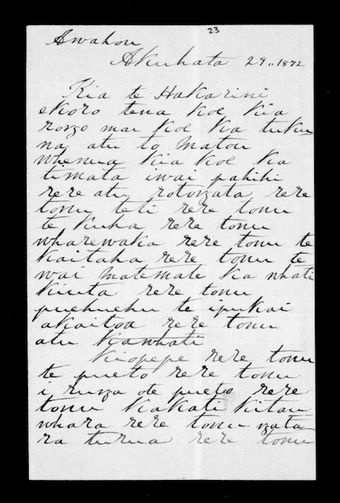 23
Awahou
Akuhata 29.. 1872
Kia te Hakarini
ekoro tena koe kia
rongo mai koe ka tuku
na atu to matou
whenua kia koe ka
timata iwai pahihi
rere atu rotongata rere
tonu teti rere tonu
te kuha rere tonu
wharewaka rere tonu te
kaitaha rere tonu te
wai matemate ka whati
kiuta rere tonu
puehuehu te ipukai
akaitoa rere tonu
atu kawhati
kiopepe rere tonu
te pueto rere tonu
i runga ote pueto rere
tonu kakati kitau
whara rere tonu ngata
ra turua rere tonu